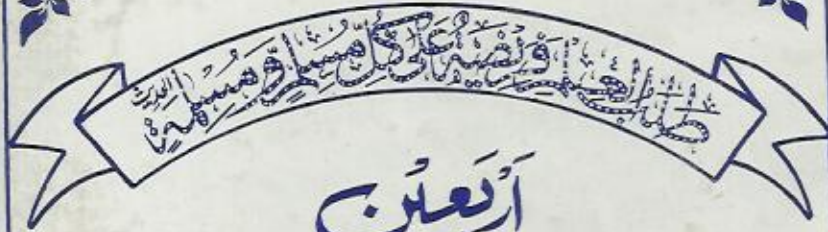 طَلَبُ الْعِلْمِ فَرِيضَةٌ عَلٰى كُلِّ مُسْلِمٍ وَّ مُسْلِمَةٍ (الحديث)
اَرْبَعِیْن